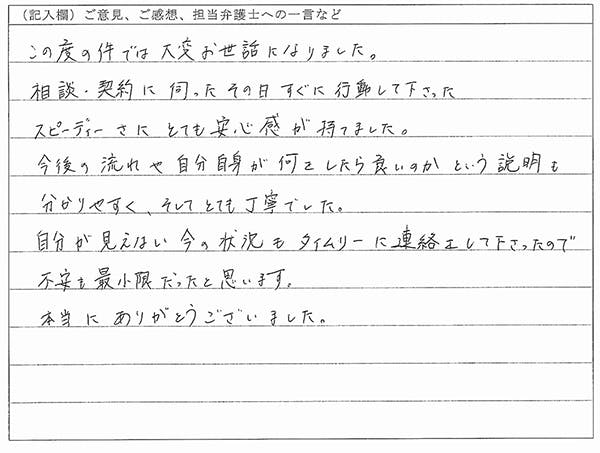 （記入欄）ご意見、ご感想、担当弁護士への一言など
この度の件では大変お世話になりました。
相談・契約に伺ったその日すぐに行動して下さった
スピーディーさにとても安心感が持てました。
今後の流れや自分自身が何をしたら良いのかという説明も
分かりやすく、そしてとても丁寧でした。
自分が見えない今の状況もタイムリーに連絡をして下さったので
不安も最小限だったと思います。
本当にありがとうございました。